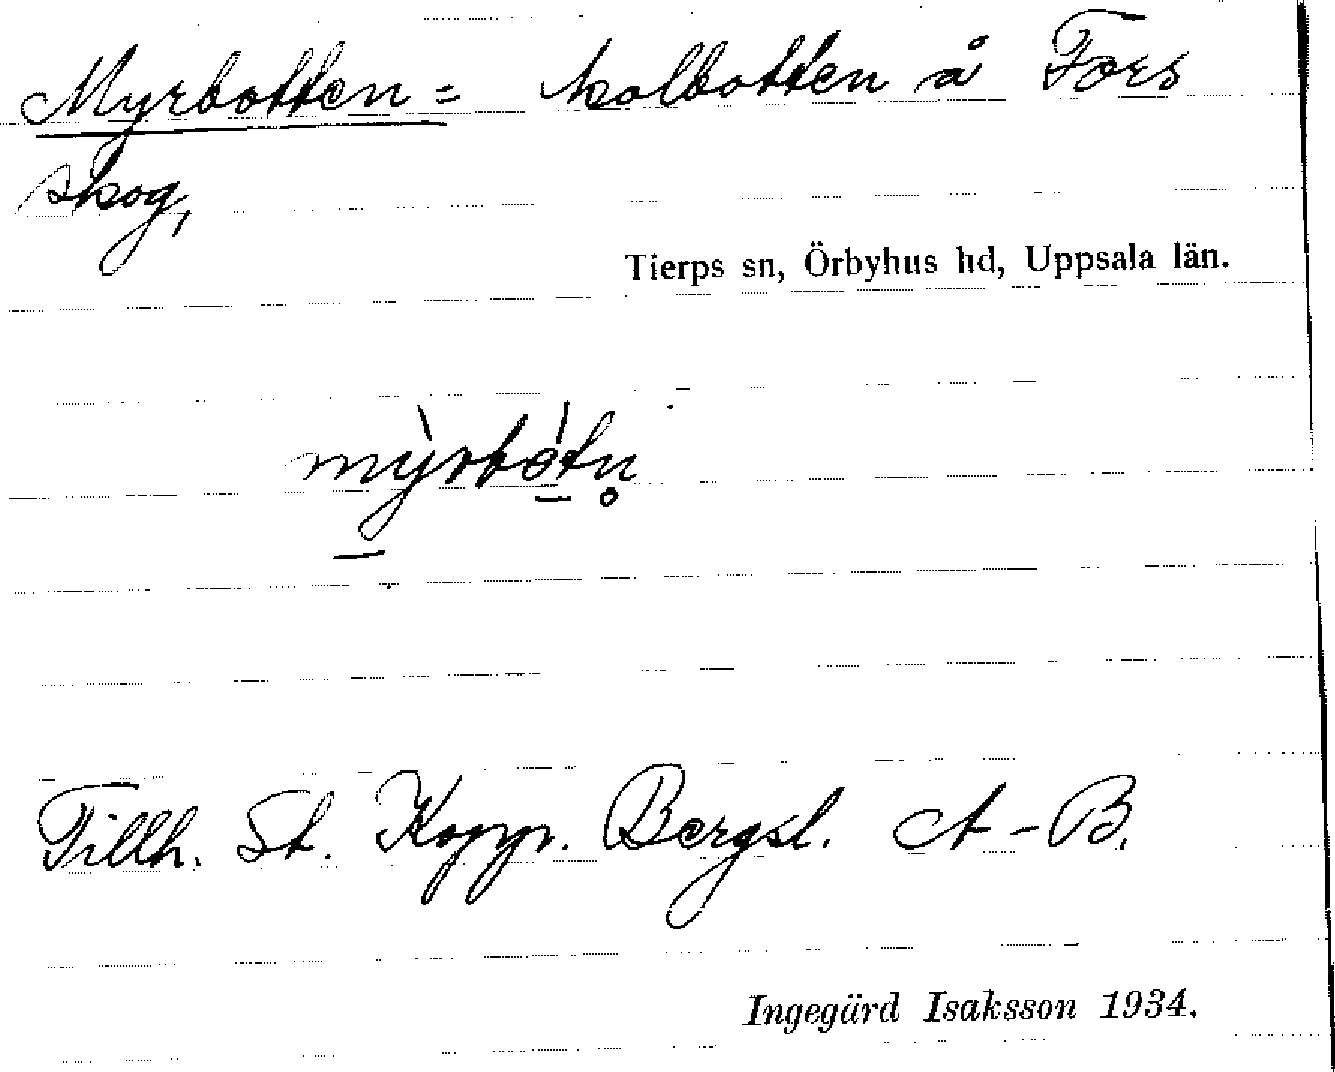 Myrbotten = kolbotten å Fors
skog,
Tierps sn, Örbyhus hd, Uppsala län.
mỳrbǫ́tn̥
Tillh. St. Kopp. Bergsl. A-B.
Ingegärd Isaksson 1934.